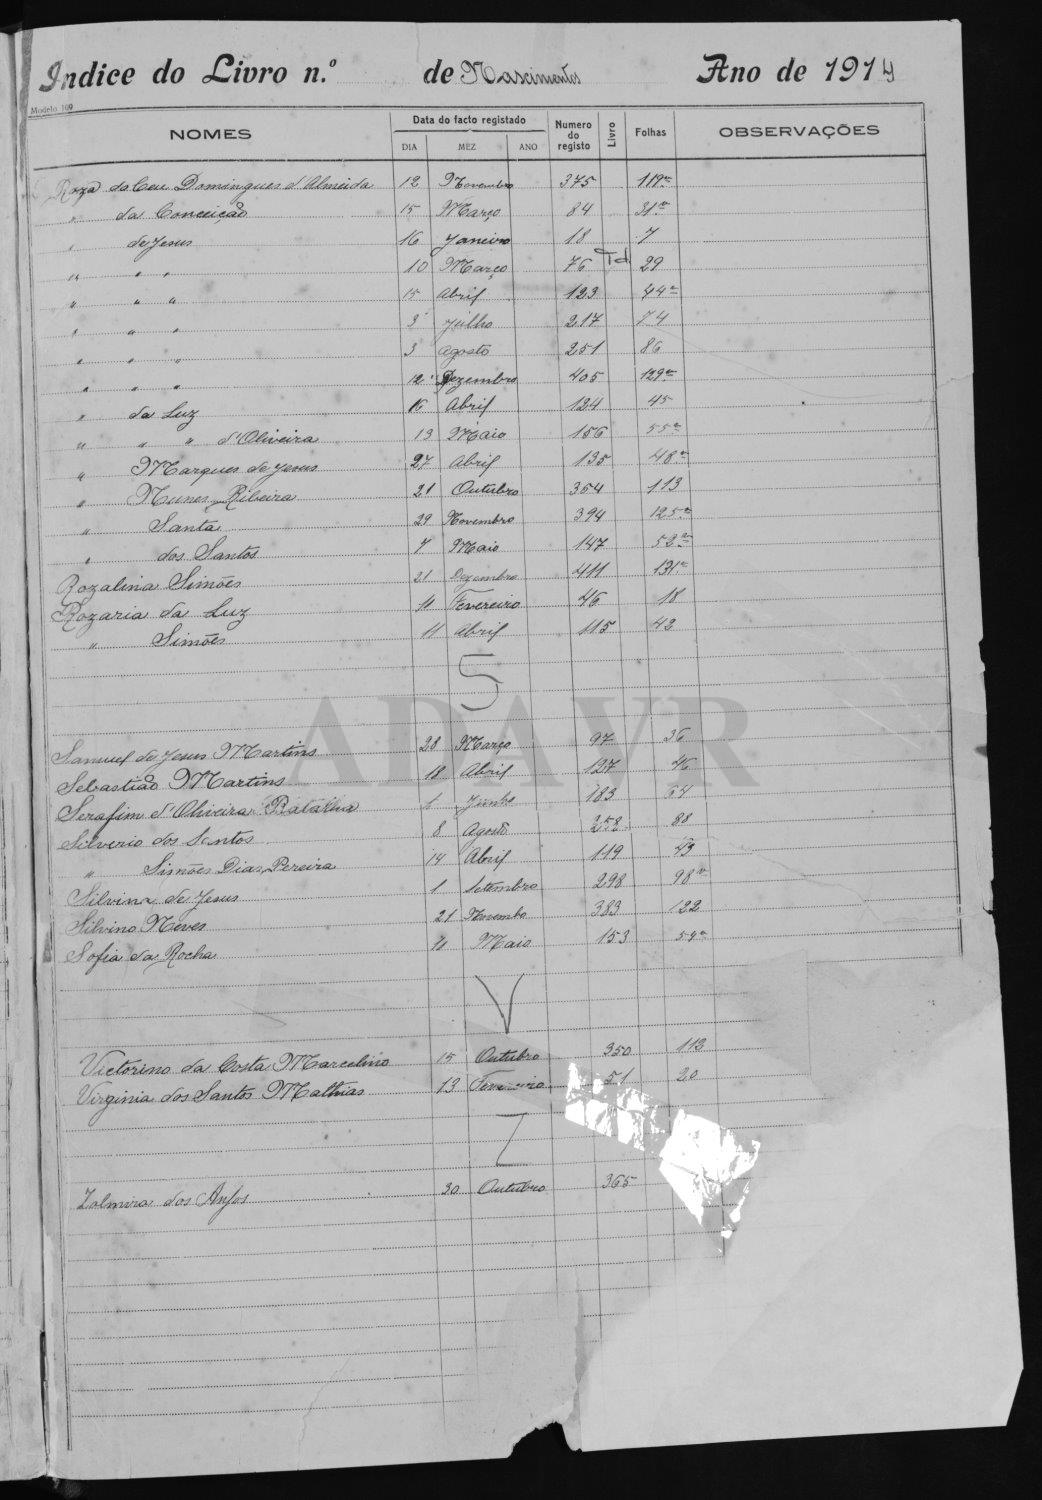 Indice do Livro n.º de Nascimentos Ano de 1914
Modelo 109
NOMES Data do facto registado Numero do registo Livro Folhas OBSERVAÇÕES
DIA MEZ ANO
Roza do Ceu Domingues d'Almeida 12 Novembro 375 119v
" da Conceição 15 Março 84 31v
" de Jesus 16 Janeiro 18 7
" " " 10 Março 76 Td 29
" " " 15 Abril 123 44v
" " " 3 Julho 217 74
" " " 3 Agosto 251 86
" " " 12 Dezembro 405 129v
" da Luz 16 Abril 124 45
" " " d'Oliveira 13 Maio 156 55v
" Marques de Jesus 27 Abril 135 48v
" Nunes Ribeira 21 Outubro 354 113
" Santa 29 Novembro 394 125v
" dos Santos 7 Maio 147 52v
Rozalina Simões 21 Dezembro 411 131v
Rozaria da Luz 11 Fevereiro 46 18
" Simões 11 Abril 115 42
S
ADAVR
Samuel de Jesus Martins 28 Março 97 36
Sebastião Martins 18 Abril 127 46
Serafim d'Oliveira Junho 183 64
Silverio dos Santos 8 Agosto 258 88
" Simões Dias Pereira 14 Abril 119 43
Silvina de Jesus 1 Setembro 298 98v
Silvino Neves 21 Novembo 383 122
Sofia da Rocha 11 Maio 153 54v
V
Victorino da Costa Marcelino 15 Outubro 350 112
Virginia dos Santos Mathias 13 Fevereiro 51 20
Z
Zolmira dos Anjos 30 Outubro 365